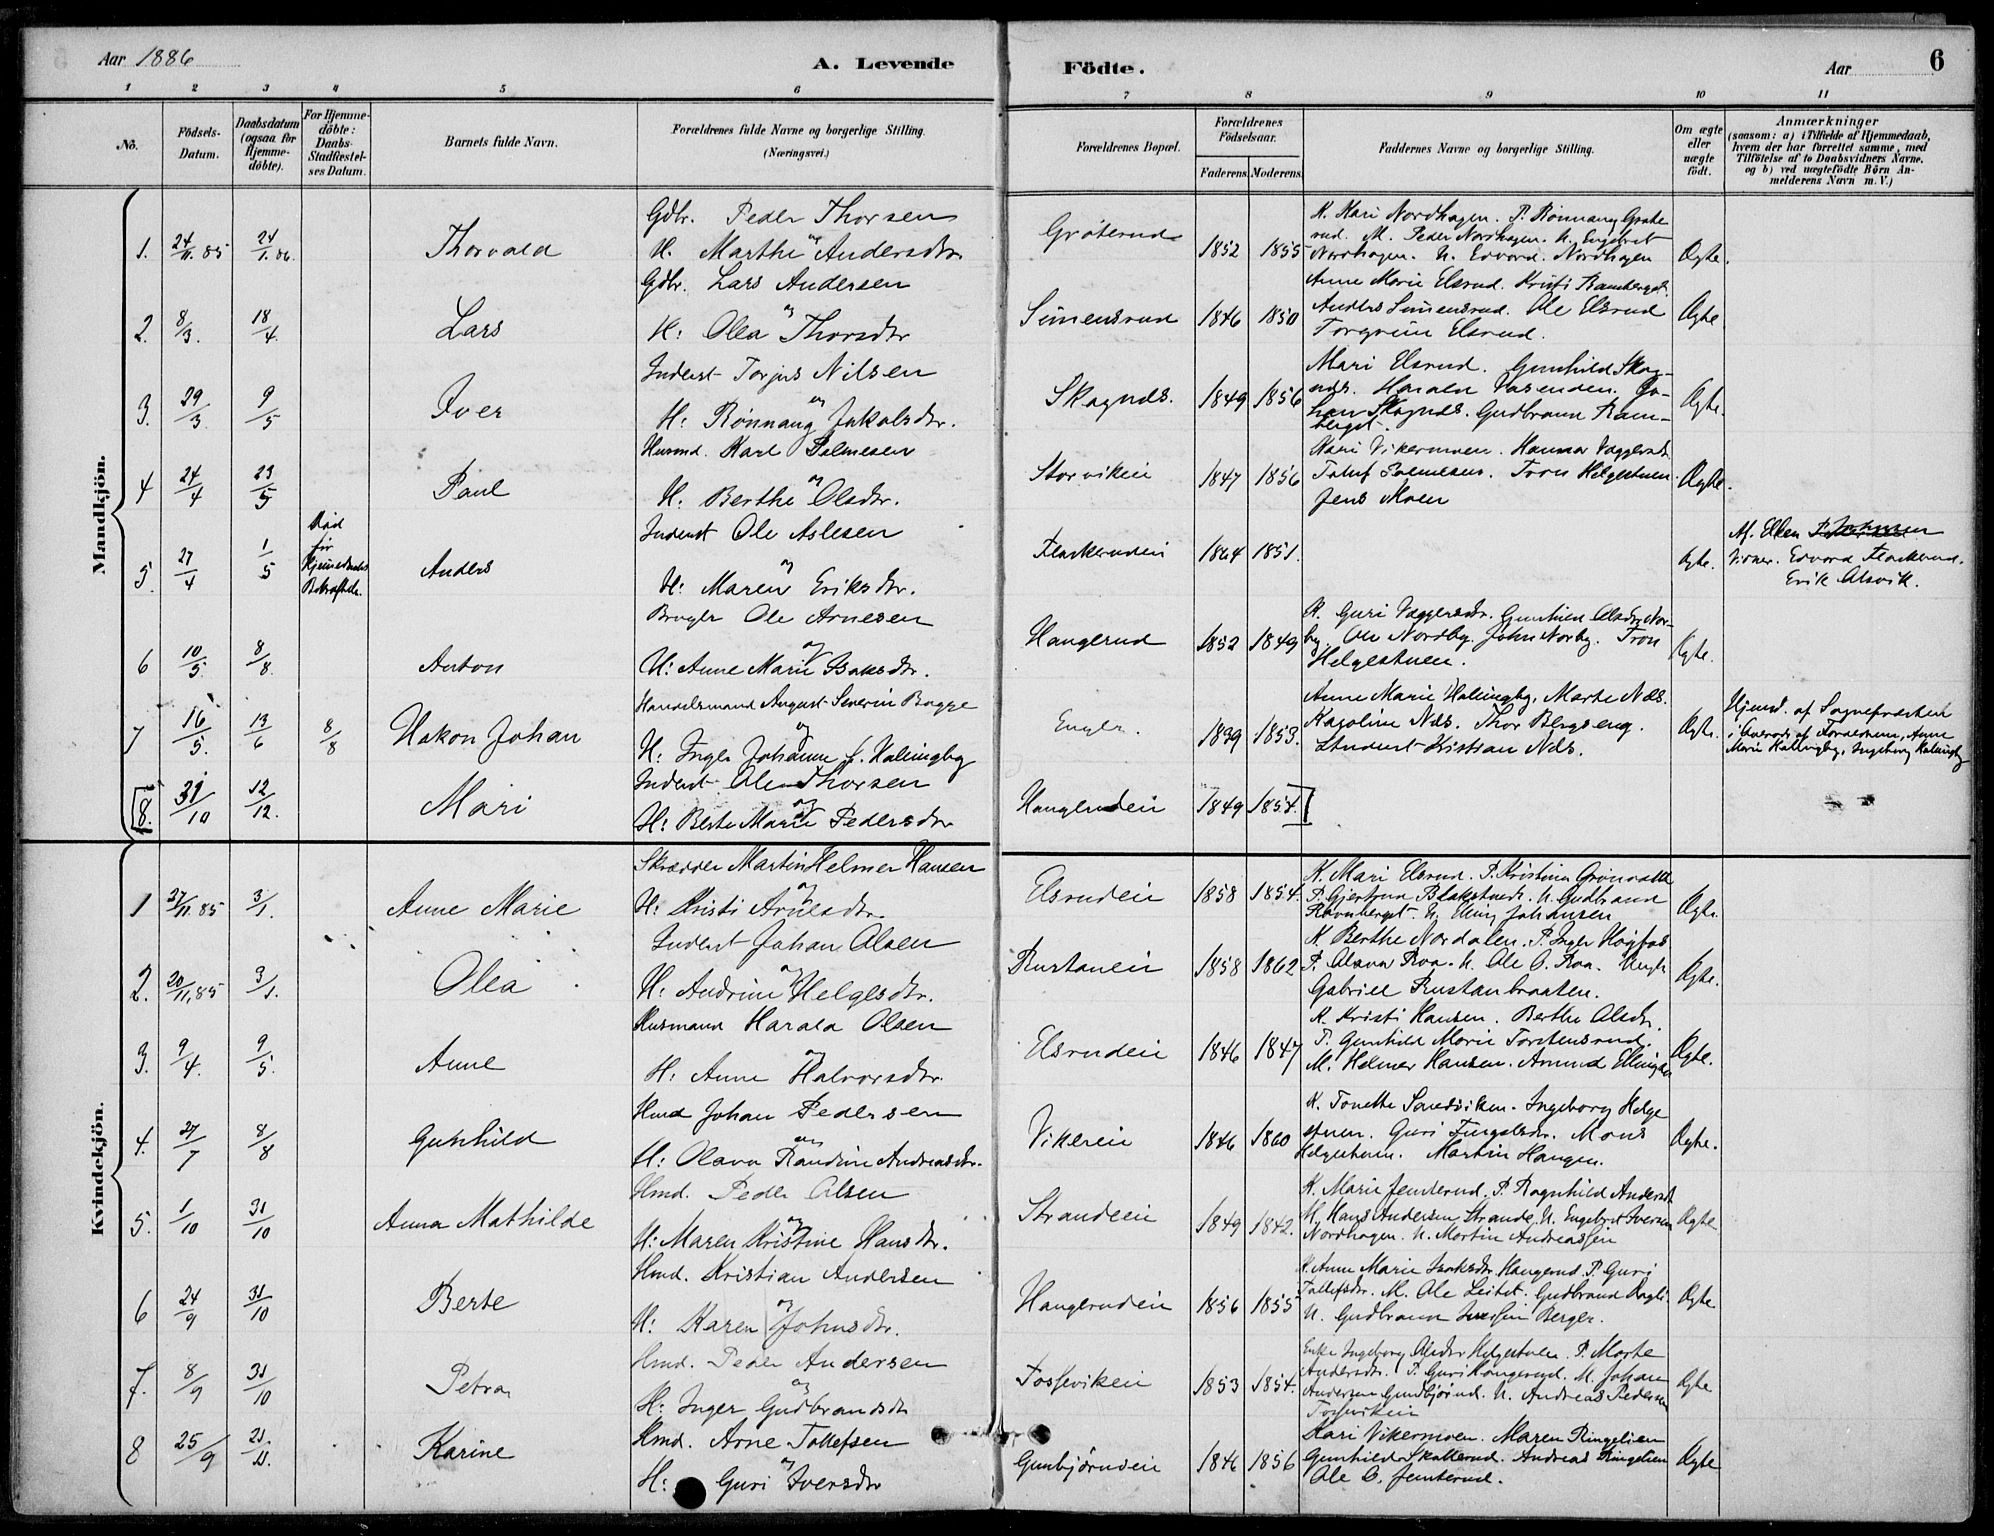 Aar 1886
A. Levende
Födte.
Aar
6
1 2 3 4 5 6 7 8 9 10 11
No.
Födsels-
Datum.
Daabsdatum
(ogsaa for
Hjemme-
döbte).
For Hjemme-
döbte:
Daabs-
Stadfæstel-
ses Datum.
Barnets fulde Navn.
Forældrenes fulde Navne og borgerlige Stilling.
(Næringsvei.)
Forældrenes Bopæl.
Forældrenes
Födselsaar.
Faderens. Moderens.
Faddernes Navne og borgerlige Stilling.
Om ægte
eller
uægte
födt.
Anmærkninger
(saasom: a) i Tilfælde af Hjemmedaab,
hvem der har forrettet samme, med
Tilföielse af to Daabsvidners Navne,
og b) ved uægtefödte Börn An-
melderens Navn m. V.)
Mandkjön.
1. 24/11.85 24/1.86. Thorvald
Gdbr. Peder Thorsen
og
H. Marthe Andersdtr.
Grøterud 1852 1855
K. Kari Nordhagen. P. Rønnaug Grøte
rud. M. Peder Nordhagen. U. Engebret
Nordhagen. U. Edvard Nordhagen
Ægte.
2. 8/3. 18/4. Lars
Gdbr. Lars Andersen
og
H: Olea Thorsdtr
Simensrud 1846 1850
Anne Marie Elsrud. Kristi Ramberget.
Anders Simensrud. Ole Elsrud
Torgrim Elsrud.
Ægte
3. 29/3 9/5 Iver
Inderst Torjus Nilsen
og
H: Rønnaug Jakobsdtr.
Skagnæs. 1849 1856
Mari Elsrud. Gunhild Skag-
næs. Harald Vasenden. Jo-
han Skagnæs. Gudbrand Ram-
berget.
Ægte.
4 24/4 23/5 Paul
Husmd. Karl Palmesen
og
H. Berthe Olsdtr.
Storvikeie 1847 1856
Kari Vikermoen. Hanna Væglersdtr.
Toluf Palmesen. Tron Helgestuen
Jens Moen
Ægte.
5. 27/4 1/5
Død
før
Hjemmedaabs
Bekræftelse.
Anders
Inderst Ole Aslesen
og
H: Maren Eriksdtr.
Flaskerudeie 1864 1851.
Ægte.
Af. Elken
Vidner. Edvard Flaskerud.
Erik Alsvik.
6 10/5. 8/8. Anton
Brugler Ole Arnesen
og
H: Anne Marie Isaksdtr.
Haugerud 1852 1849
K. Guri Væglersdtr. Gunhild Olsdtr Nor-
by. Ole Nordby. John Norby. Tron
Helgestuen.
Ægte.
7 16/5. 13/6 8/8 Hakon Johan
Handelsmand August Severin Bagge
og
H: Inger Johanne f. Hallingby
Enger 1839 1853.
Anne Marie Hallingby, Marte Næs.
Karoline Næs. Thor Bergseng.
Student Kristian Næs.
Ægte.
Hjemd. af Sognepræsten
i Overvær af Forældrene, Anne
Marie Hallingby, Ingeborg Hallingby
[8. 31/10 12/12. Mari
Inderst Ole Thorsen
og
H: Berte Marie Pedersdtr
Haugerudeie 1849 1854.]
Kvindekjön.
1 27/11.85 3/1. Anne Marie
Skrædder Martin Helmer Hansen
og
H: Kristi Arnesdtr.
Elsrudeie 1858 1854.
K. Mari Elsrud. P. Kristina Grønvold
P. Gjertrud Blakstvedt. U. Gudbrand
Ramberget. U. Elling Johansen
Ægte.
2. 20/11.85 3/1. Olea
Inderst Johan Olsen
og
H: Andrine Helgesdtr.
Rustaneie 1858 1862
K. Berthe Nordalen. P. Inger Høgfos
P. Olava Roa. U. Ole O. Roa. Ungk.
Gabriel Rustanbraaten.
Ægte.
3. 9/4. 9/5. Anne
Husmand Harald Olsen
og
H: Anne Halvorsdtr.
Elsrudeie 1846 1847
K. Kristi Hansen. Berthe Olsdtr.
P. Gunhild Marie Torstensrud.
M. Helmer Hansen. Amund Ellingsen
Ægte.
4. 27/7 8/8 Gunhild
Hmd Johan Pedersen
og
H: Olava Randine Andreasdtr.
Vikereie 1846 1860
K. Tonette Sandviken. Ingeborg Helge
stuen. Guri Fingalsdtr. Mons
Helgestuen. Martin Haugen.
Ægte.
5. 1/10 31/10 Anna Mathilde
Hmd. Peder Olsen
og
H: Maren Kristine Hansdtr.
Strandeie 1849 1842.
K. Marie Jemterud. P. Ragnhild Andersdtr
M. Hans Andersen Strande. U. Engebret Iversen
Nordhagen. U. Martin Andreassen
Ægte
6 24/9 31/10 Berte
Hmd. Kristian Andersen
og
H: Karen Johnsdtr.
Haugerudeie 1856 1855
K. Anne Marie Isaksdtr Haugerud. P. Guri
Tollefsdtr. M. Ole Leitet. Gudbrand Rogli.
U. Gudbrand Iversen Berger.
Ægte
7. 8/9 31/10 Petra
Hmd. Peder Andersen
og
H: Inger Gudbrandsdtr
Fosseviken 1853 1854.
Enke Ingeborg Olsdtr Helgestuen. P. Marte
Andersdtr. P. Guri Haugerud. M. Johan
Andersen Gunbjørnd. U. Andreas Pedersen
Fosseviken
Ægte
8 25/9 21/11. Karine
Hmd. Arne Tollefsen
og
H: Guri Iversdtr
Gunbjørndeie 1846 1856
Kari Vikermoen. Maren Ringelien
Gunhild Skollerud. Andreas Ringelien
Ole O. Jemterud.
Ægte